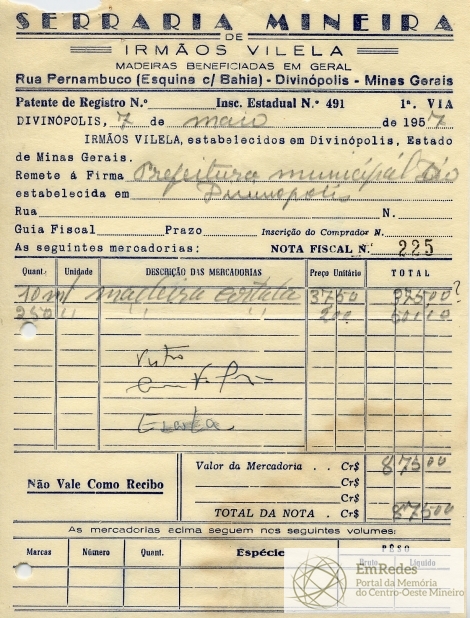 SERRARIA MINEIRA
DE
IRMÃOS VILELA
MADEIRAS BENEFICIADAS EM GERAL
Rua Pernambuco (Esquina c/ Bahia) - Divinópolis - Minas Gerais
Patente de Registro N.º Insc. Estadual N.º 491 1.ª VIA
DIVINÓPOLIS, 7 de maio de 1957
IRMÃOS VILELA, estabelecidos em Divinópolis, Estado
de Minas Gerais.
Remete á Firma Prefeitura municipal
estabelecida em Divinopolis
Rua N.
Guia Fiscal Prazo Inscrição do Comprador N.
As seguintes mercadorias: NOTA FISCAL N.º 225
Quant. Unidade DESCRIÇÃO DAS MERCADORIAS Preço Unitário TOTAL
10 madeira 3750 375,00 ?
250 " " " 200 500,00
Visto
Valor da Mercadoria . . Cr$ 875 00
Cr$
Não Vale Como Recibo
Cr$
TOTAL DA NOTA . Cr$ 875,00
As mercadorias acima seguem nos seguintes volumes:
Marcas Número Quant. Espécie PÊSO
Bruto Líquido
EmRedes
Portal da Memória
do Centro-Oeste Mineiro